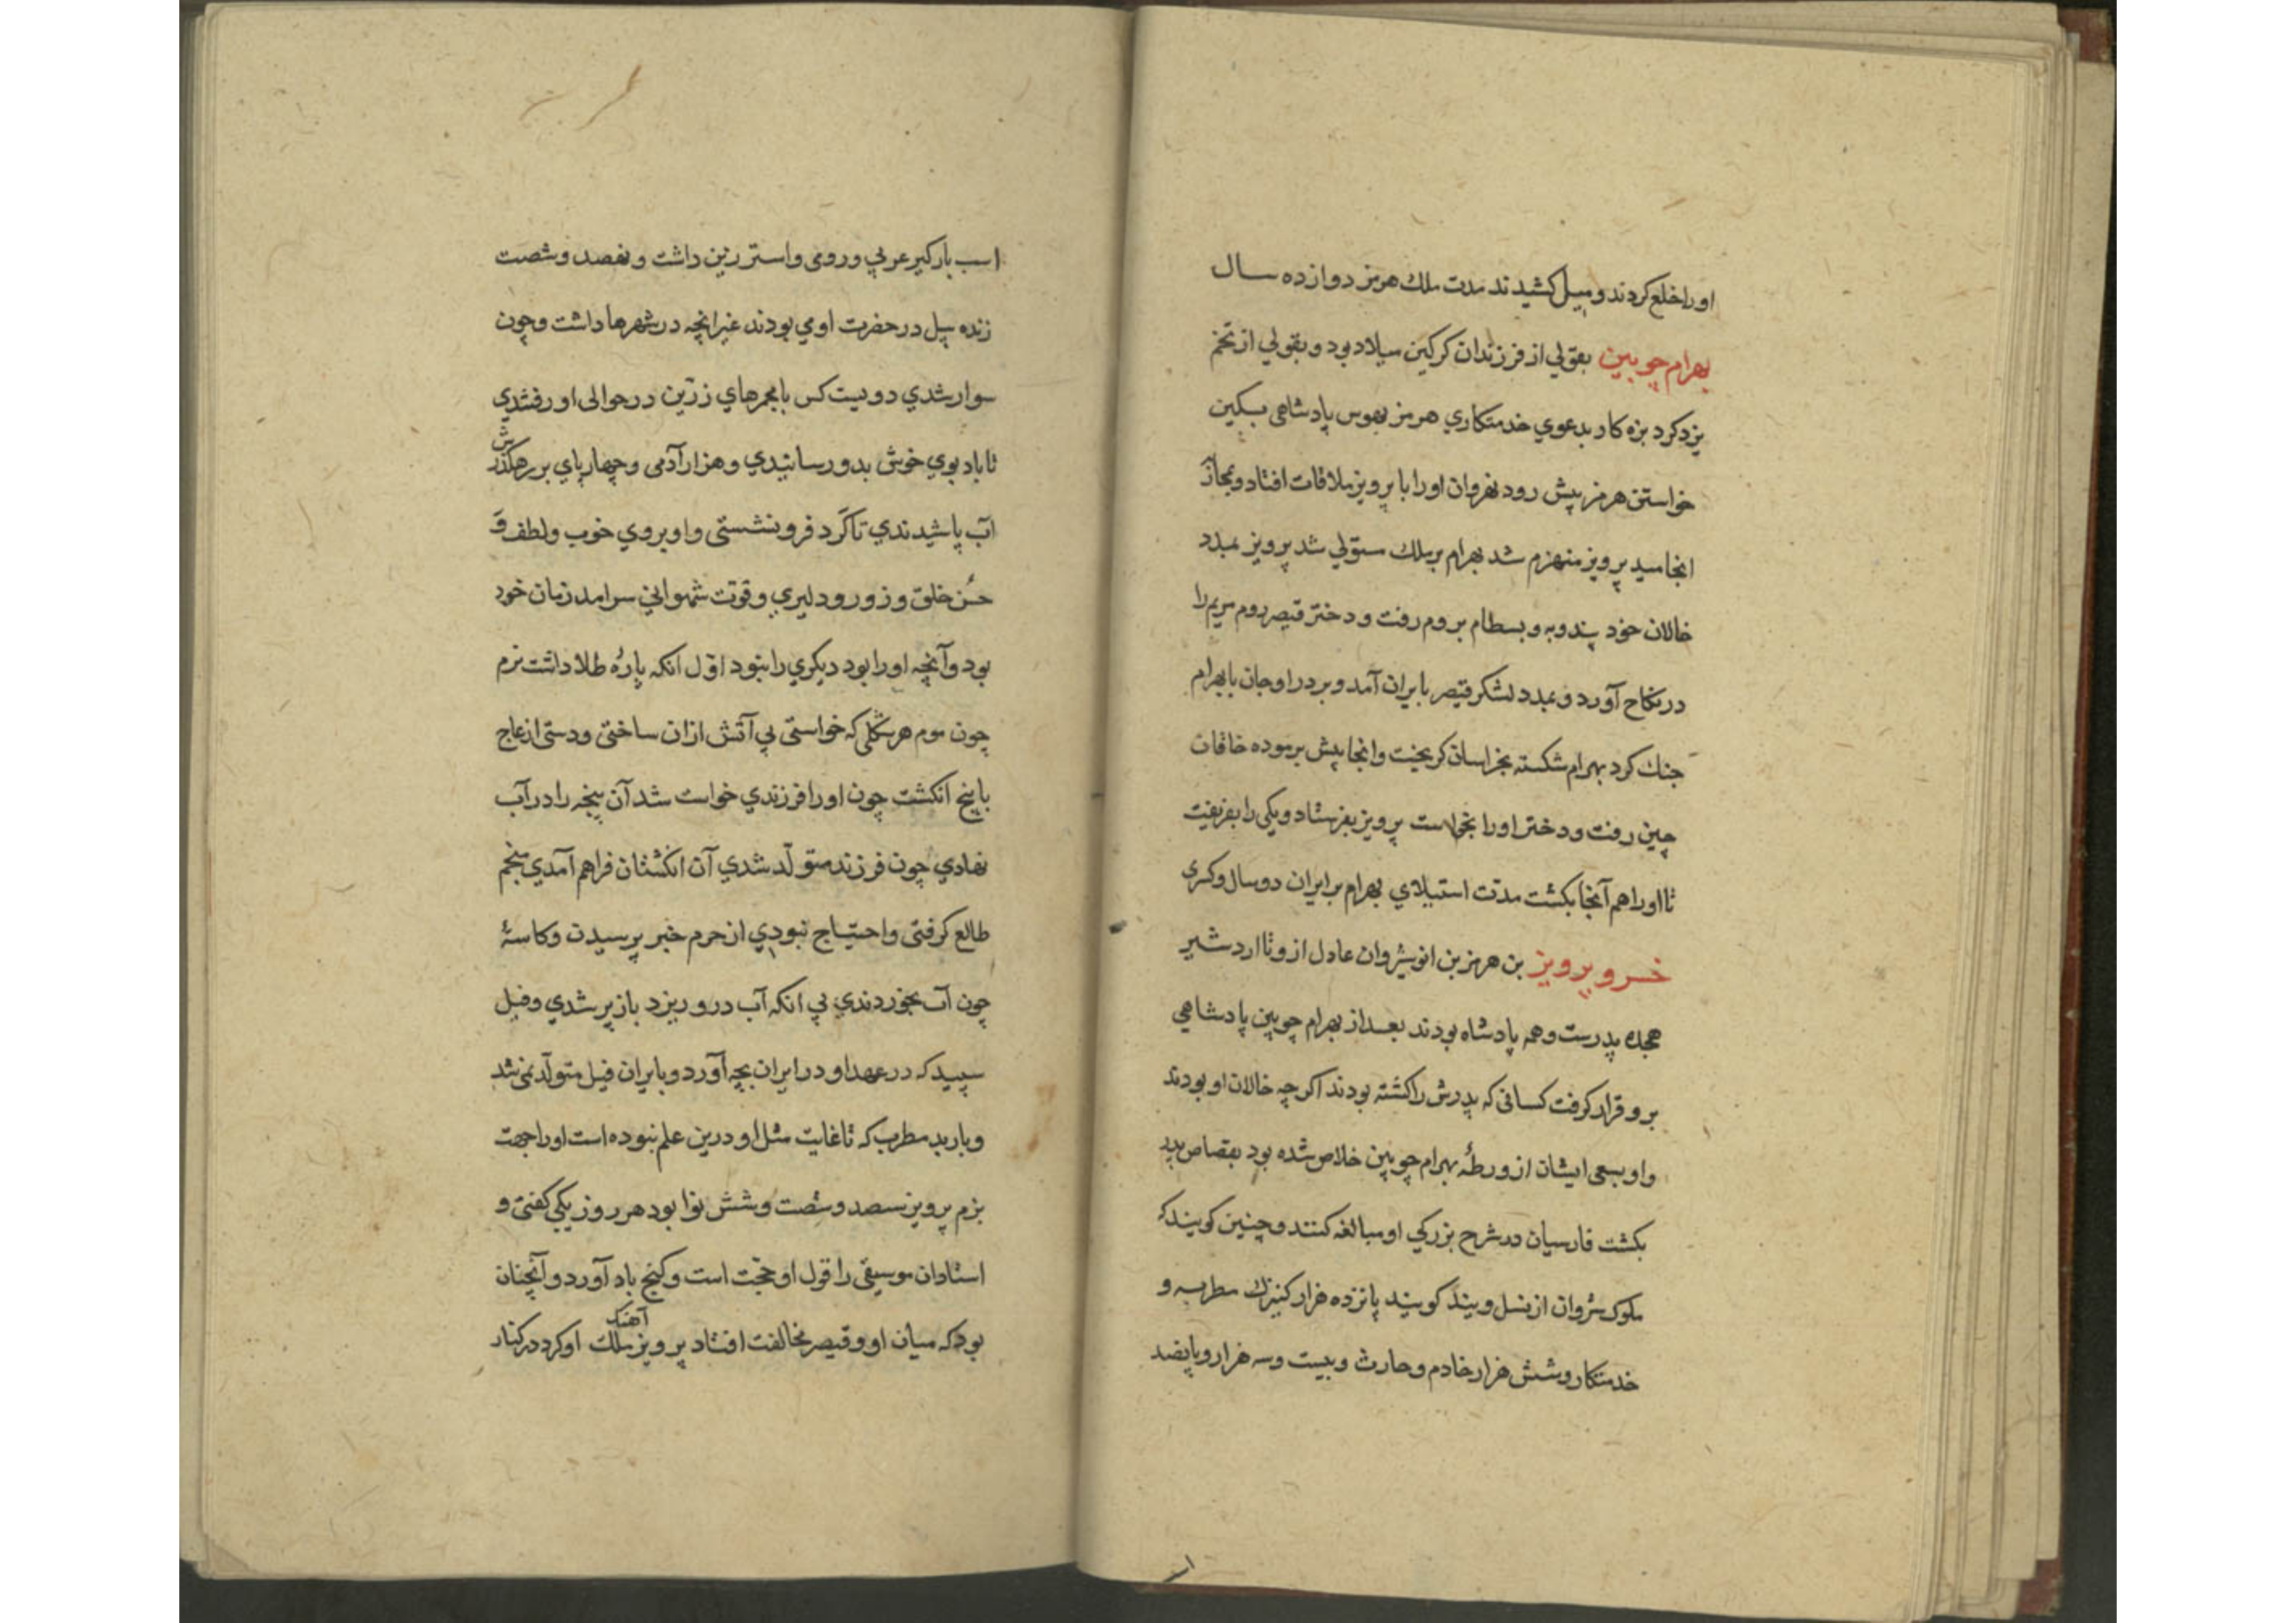 اورا خلع کردند و میل کشیدند مدت ملك هرمز دوازده سال
بهرام چوبین بقولی از فرزندان کرکین میلاد بود و بقولي از تخم
یزدکرد بزه کار بدعوي خدمتکاري هرمز بهوس پادشاهی بسکین
خواستن هرمز پیش رود نهروان اورا با پرویز ملاقات افتاد و بمحاز
انجامید پرویز منهزم شد بهرام بر ملك مستولي شد پرویز بمدد
خالان خود پندویه و بسطام بروم رفت و دختر قیصر روم مریم را
در نکاح آورد و بمدد لشکر قیصر بایران آمد و بر در اوجان با بهرام
جنك کرد بهرام شکسته بخراسان کریخت و انجا پیش برموده خاقان
چین رفت و دختر اورا بخواست پرویز بفرستاد و یکی را بفریفت
تا اورا هم آنجا بکشت مدّت استیلاي بهرام بر ایران دو سال و کسری
خسرو پرویز بن هرمز بن انوشیروان عادل ازو تا اردشیر
هجده پدرست و همه پادشاه بودند بعد از بهرام چوبین پادشاهي
برو قرار کرفت کسانی که پدرش را کشته بودند اکر چه خالان او بودند
و او بسعی ایشان از ورطهٔ بهرام چوبین خلاص شده بود بقصاص پدر
بکشت فارسیان در شرح بزرکي او مبالغه کنند و چنین کویند که
ملوك شروان از نسل ویند کویند پانزده هزار کنیزك مطربه و
خدمتکار و شش هزار خادم و حارث و بیست و سه هزار و پانصد
اسـ
اسب بارکیر عربي و رومی و استر زین داشت و نهصد و شصت
زنده پیل در حضرت او مي بودند غیر انچه در شهرها داشت و چون
سوار شدي دویست کس با مجمرهاي زرّین در حوالی او رفتندي
تا باد بوي خوش بدو رسانیدي و هزار آدمی و چهارپاي بر رهکذرش
آب پاشیدندي تا کَرد فرو نشستی و او بروي خوب و لطف وَ
حُسن خلق و زور و دلیري و قوّت شهواني سرامد زمان خود
بود و آنچه اورا بود دیکري را نبود اوّل انکه پارۀ طلا داشت نرم
چون موم هر شکلی که خواستی بي آتش ازان ساختی و دستی از عاج
با پنج انکشت چون اورا فرزندي خواست شد آن پنجه را در آب
نهادي چون فرزند متولّد شدي آن انکشتان فراهم آمدي منجم
طالع کرفتی و احتیاج نبودي از حرم خبر پرسیدن و کاسۀ
چون آب بخوردندي بي انکه آب درو ریزد باز پر شدي و فیل
سپید که در عهد او در ایران بچه آورد و بایران فیل متولّد نمی شد
و باربد مطرب که تا غایت مثل او درین علم نبوده است اورا جهت
بزم پرویز سیصد و شصت و شش نوا بود هر روز یکي کفتی و
استادان موسیقی را قول او حجّت است و کنج باد آورد و آنچنان
بود که میان او و قیصر مخالفت افتاد پرویز آهنك ملك او کرد در کنار